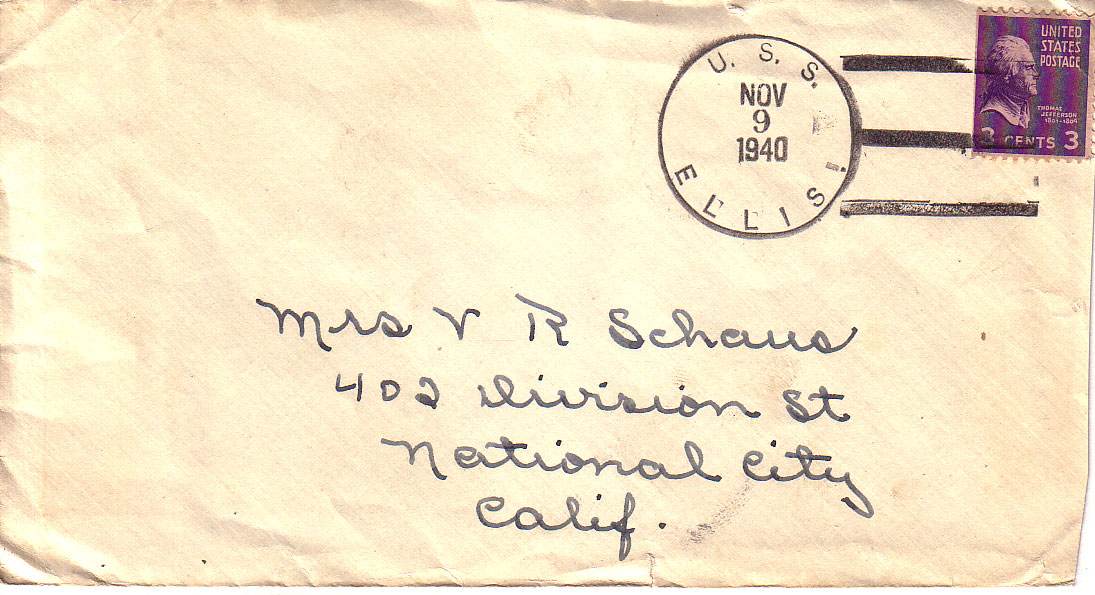 U. S. S.
NOV
9
1940
ELLIS
UNITED
STATES
POSTAGE
THOMAS
JEFFERSON
1801-1809
3 CENTS 3
Mrs V R Schaus
402 Division St
National City
Calif.